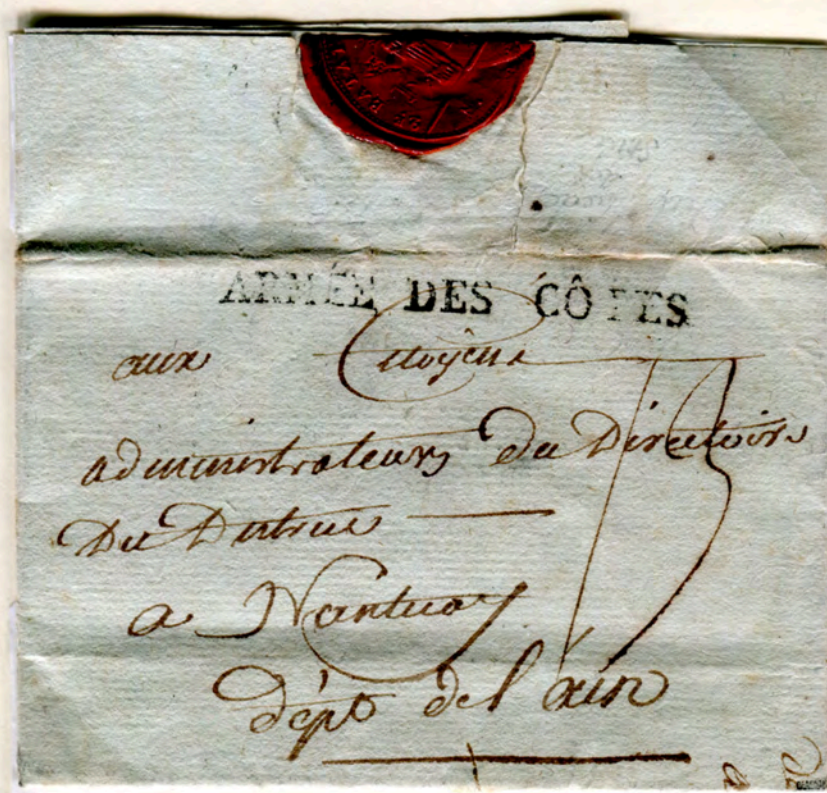 BATAI
ARMÉE DES CÔTES
aux Citoyens
administrateurs du Directoire
Du District
a Nantua
dépt de l'ain
15